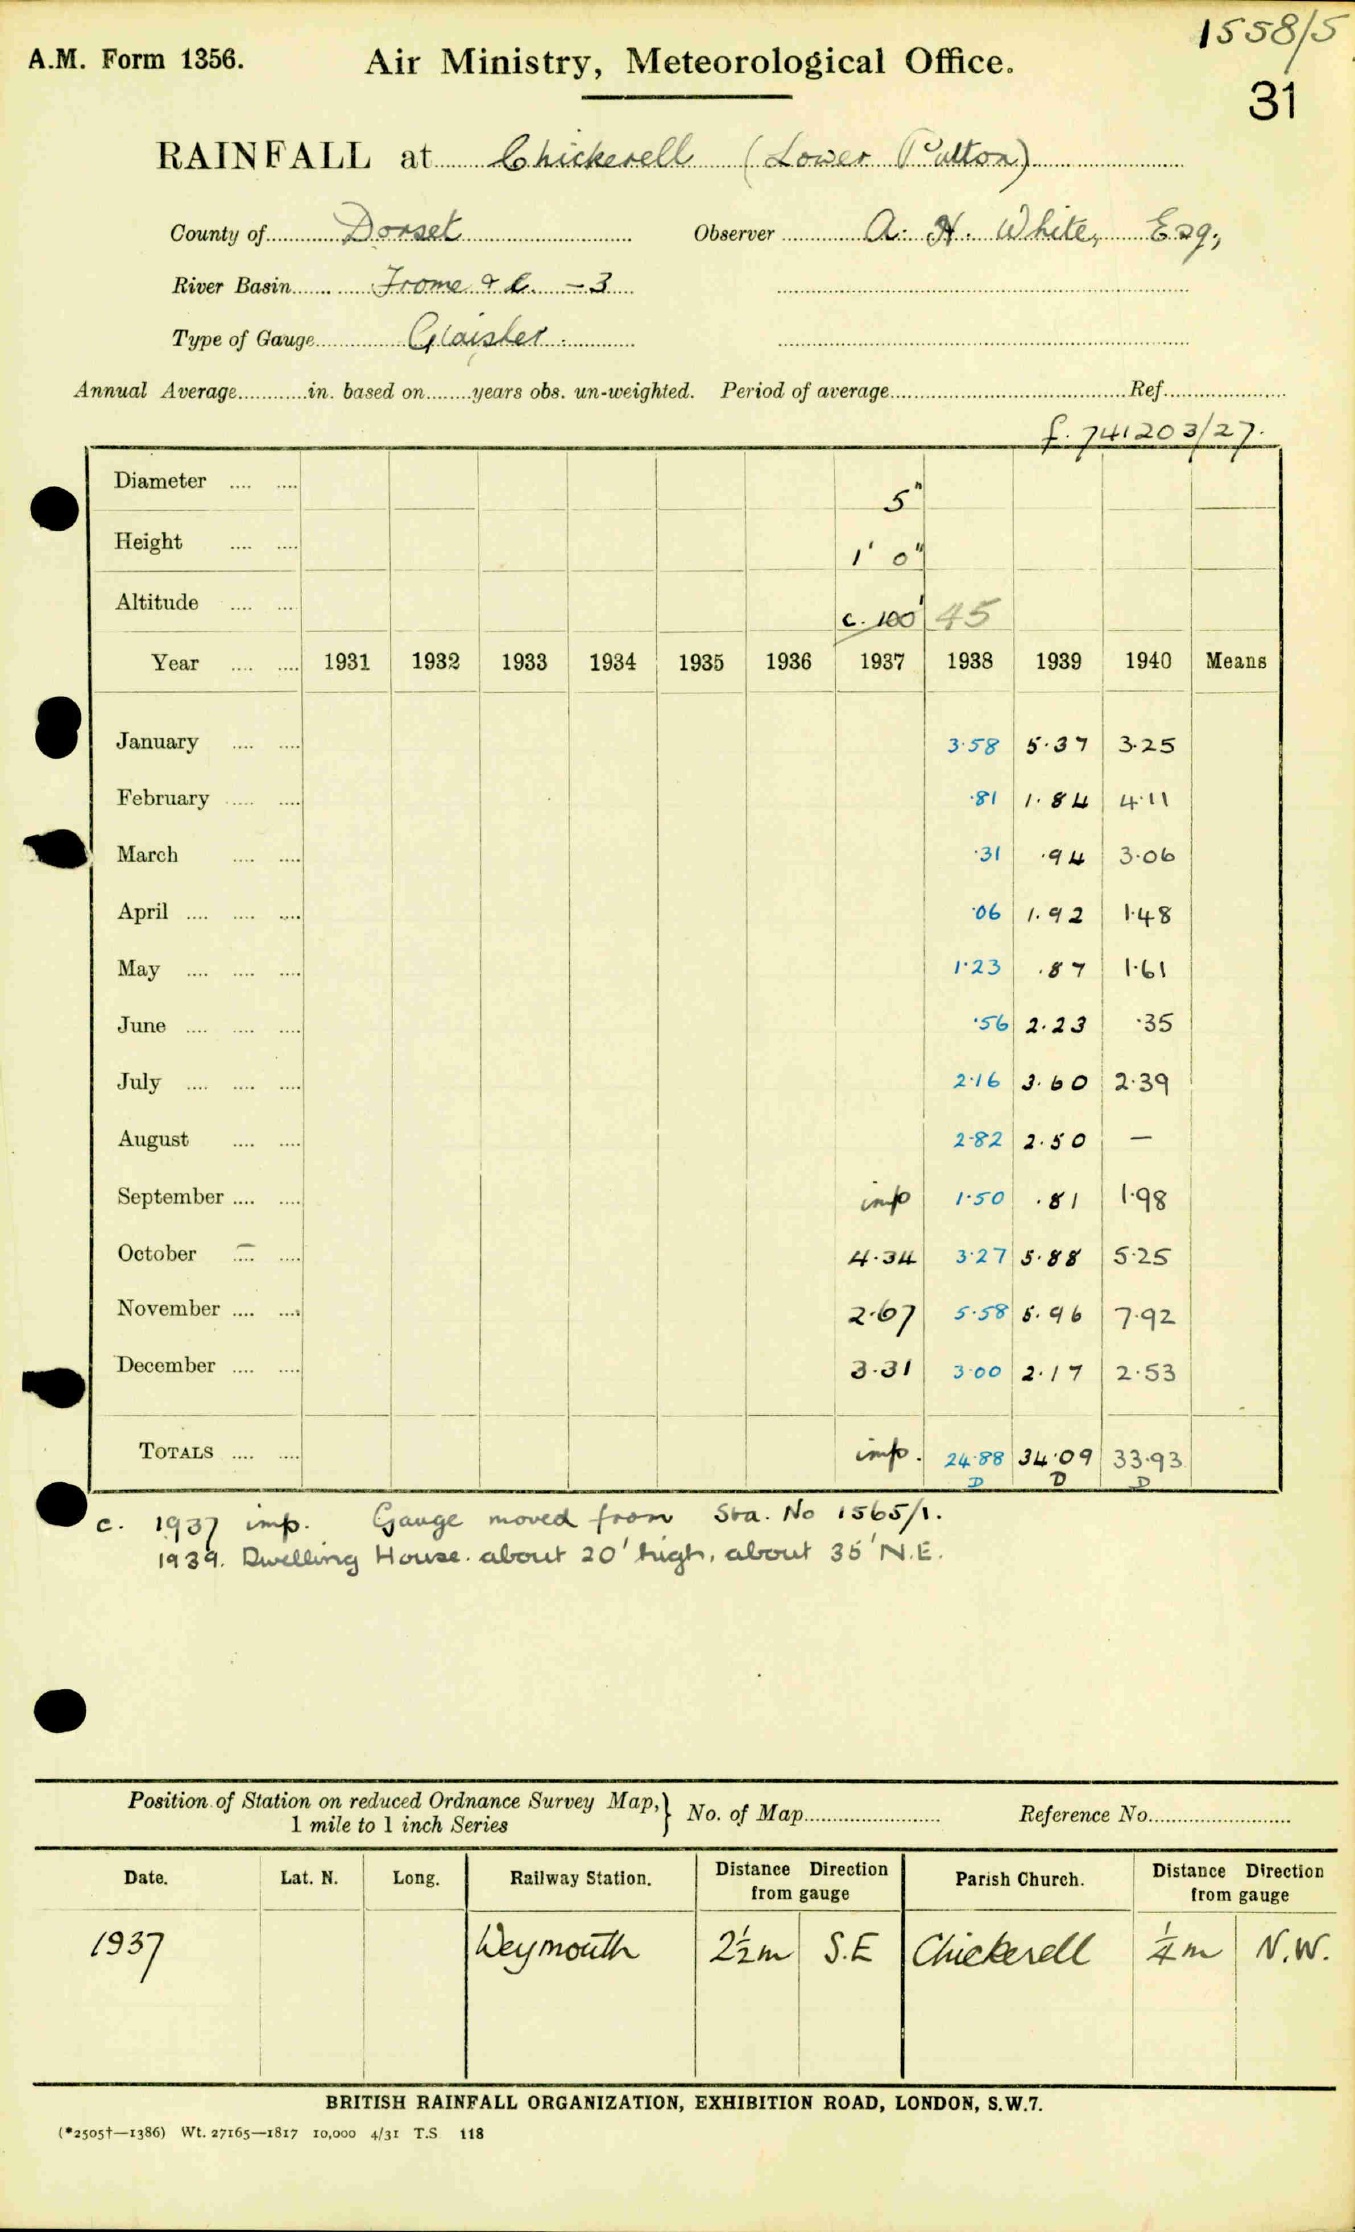 1558/5
A.M. Form 1356. Air Ministry, Meteorological Office.
31
RAINFALL at Chickerell (Lower Putton)
County of Dorset Observer A. H. White, Esq.,
River Basin Frome &c. - 3
Type of Gauge Glaisher.
Annual Average in. based on years obs. un-weighted. Period of average Ref.
f. 741203/27.
Diameter 5"
Height 1' 0"
Altitude c. 100' 45
Year 1931 1932 1933 1934 1935 1936 1937 1938 1939 1940 Means
January 3.58 5.37 3.25
February .81 1.84 4.11
March .31 .94 3.06
April .06 1.92 1.48
May 1.23 .87 1.61
June .56 2.23 .35
July 2.16 3.60 2.39
August 2.82 2.50 —
September imp 1.50 .81 1.98
October 4.34 3.27 5.88 5.25
November 2.67 5.58 5.96 7.92
December 3.31 3.00 2.17 2.53
TOTALS imp. 24.88 34.09 33.93
D D D
c. 1937 imp. Gauge moved from Sta. No 1565/1.
1939. Dwelling House. about 20' high, about 35' N.E.
Position of Station on reduced Ordnance Survey Map, } No. of Map Reference No.
1 mile to 1 inch Series
Date. Lat. N. Long. Railway Station. Distance Direction from gauge Parish Church. Distance Direction from gauge
1937 Weymouth 2½m S.E Chickerell ¼m N.W.
BRITISH RAINFALL ORGANIZATION, EXHIBITION ROAD, LONDON, S.W.7.
(*2505†—1386) Wt. 27165—1817 10,000 4/31 T.S 118